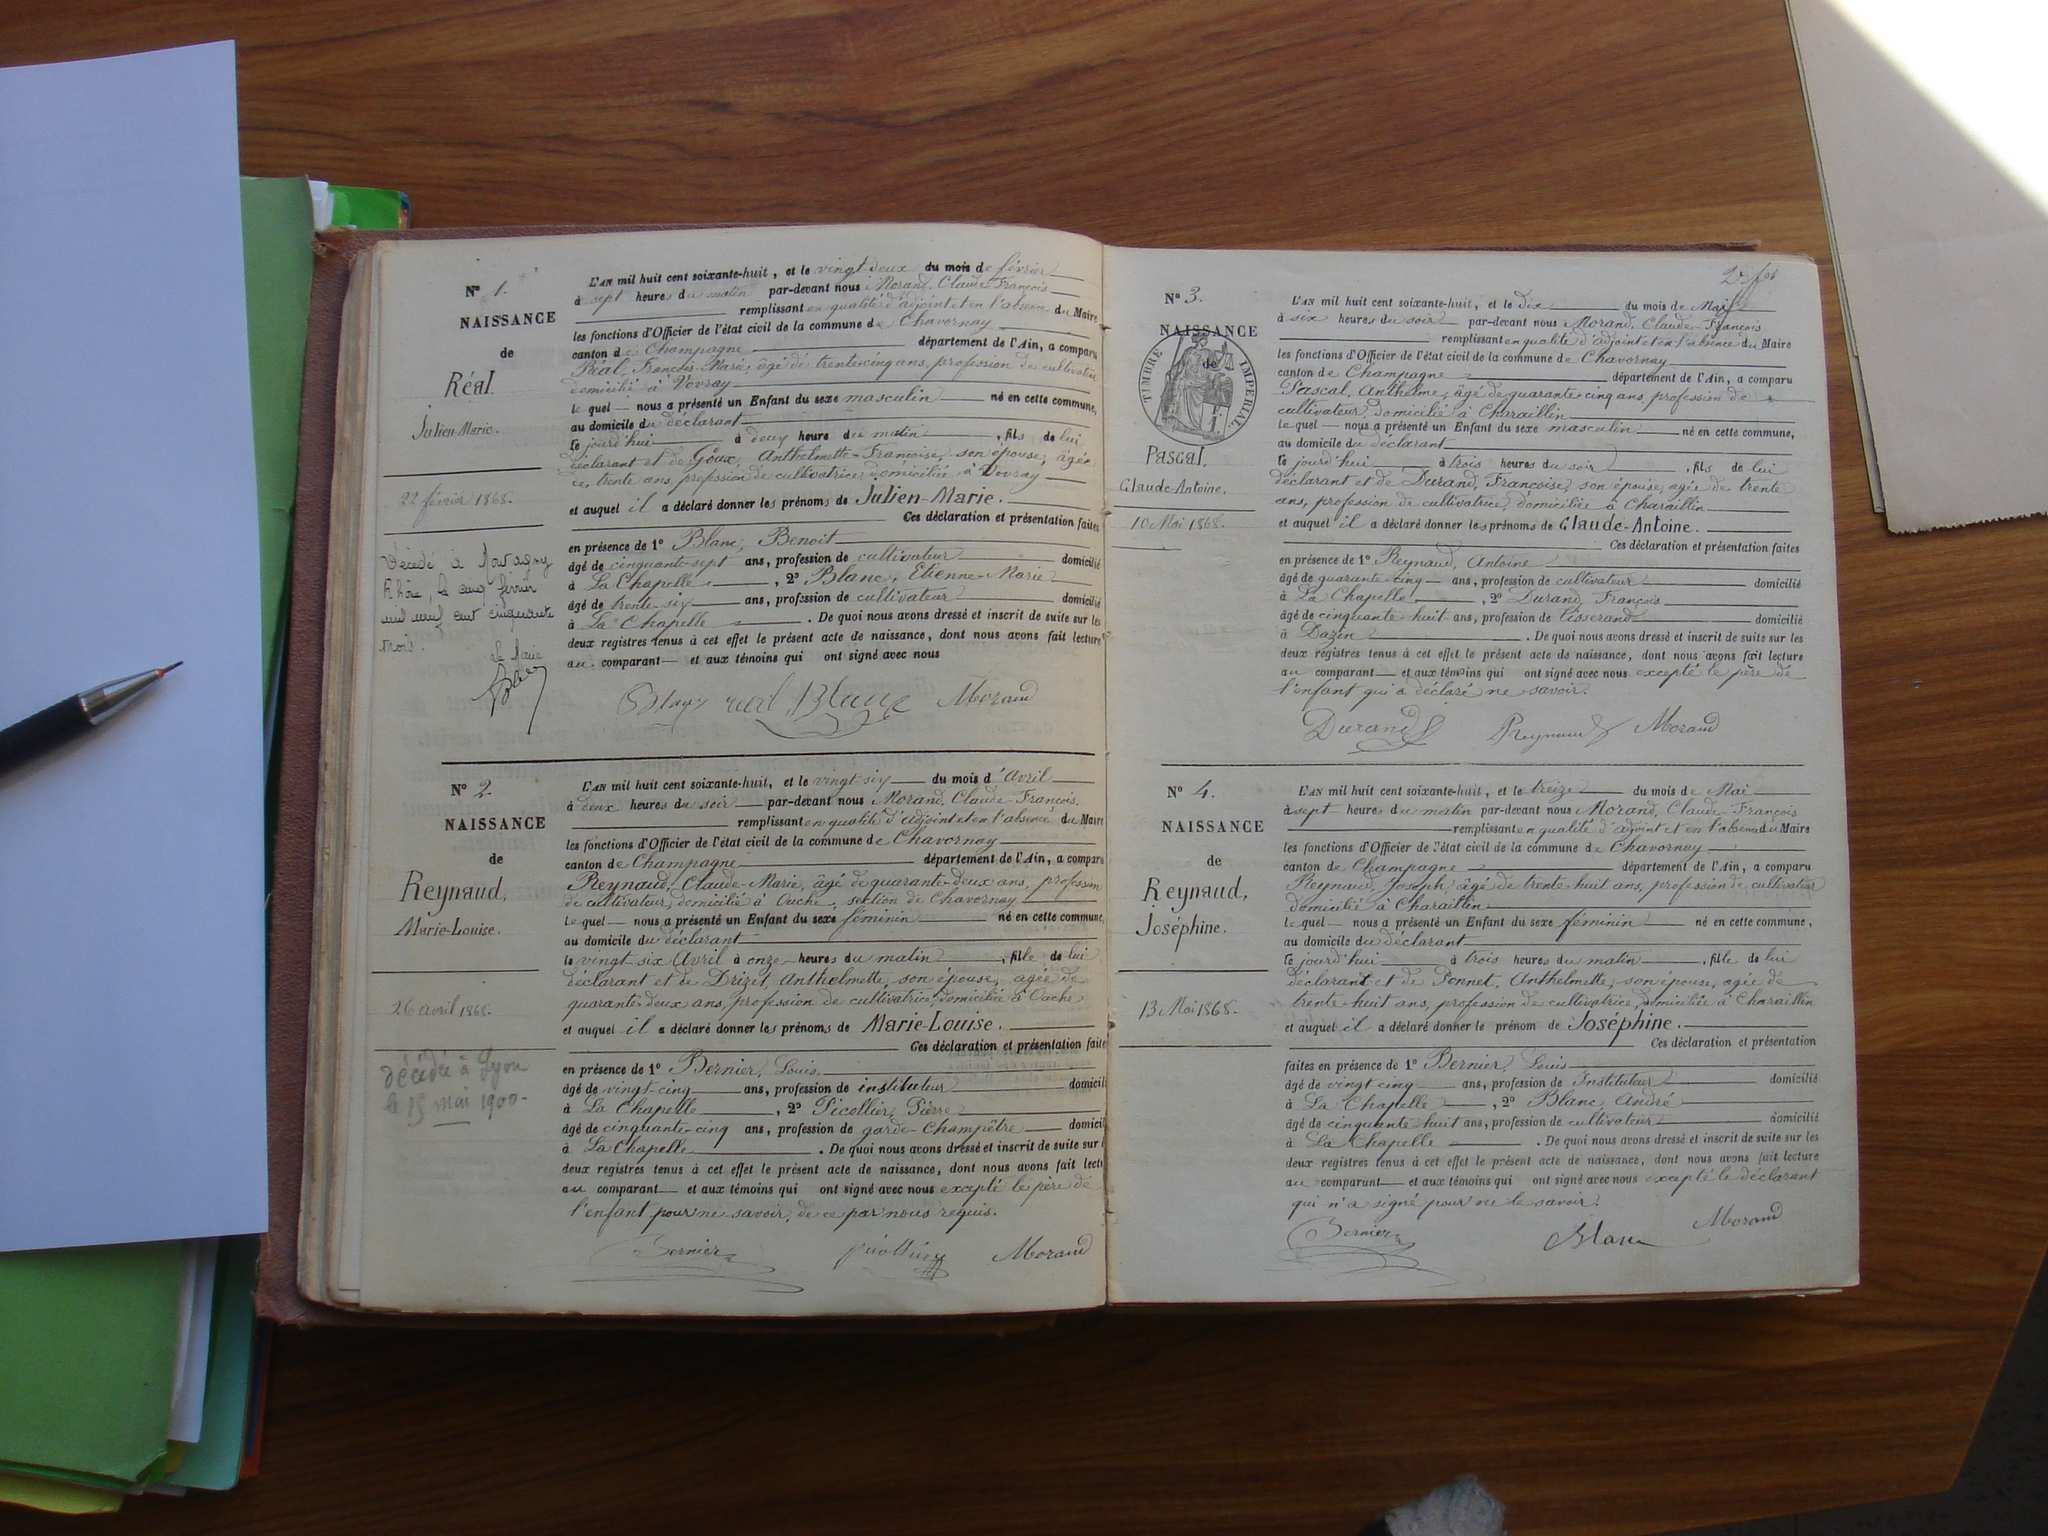 N° 1.
NAISSANCE
de
Réal.
Julien-Marie.
22 février 1868.
Décédé à
Rhône, le cinq février
mil neuf cent cinquante
trois.
Le Maire
L'AN mil huit cent soixante-huit, et le vingt-deux du mois de février
à sept heures du matin par-devant nous Morand, Claude-François
remplissant en qualité d'adjoint et en l'absence du Maire
les fonctions d'Officier de l'état civil de la commune de Chavornay
canton de Champagne département de l'Ain, a comparu
Réal, François-Marie, âgé de trente cinq ans, profession de cultivateur
domicilié à Vovray
le quel nous a présenté un Enfant du sexe masculin né en cette commune,
au domicile du déclarant
le jourd'hui à deux heure du matin, fils de lui
déclarant et de Goux, Anthelmette-Françoise, son épouse, âgée
de trente ans, profession de cultivatrice, domiciliée à Vovray
et auquel il a déclaré donner les prénoms de Julien-Marie.
Ces déclaration et présentation faites
en présence de 1° Blanc, Benoit
âgé de cinquante-sept ans, profession de cultivateur domicilié
à La Chapelle, 2° Blanc, Etienne-Marie
âgé de trente-six ans, profession de cultivateur domicilié
à La Chapelle. De quoi nous avons dressé et inscrit de suite sur les
deux registres tenus à cet effet le présent acte de naissance, dont nous avons fait lecture
au comparant et aux témoins qui ont signé avec nous
Blanc réal Blanc Morand
N° 2
NAISSANCE
de
Reynaud,
Marie-Louise.
26 avril 1868.
décédée à Lyon
le 15 mai 1900-
L'AN mil huit cent soixante-huit, et le vingt six du mois d'Avril
à deux heures du soir par-devant nous Morand, Claude-François,
remplissant en qualité d'adjoint et en l'absence du Maire
les fonctions d'Officier de l'état civil de la commune de Chavornay
canton de Champagne département de l'Ain, a comparu
Reynaud, Claude-Marie, âgé de quarante-deux ans, profession
de cultivateur, domicilié à Ouche, section de Chavornay
le quel nous a présenté un Enfant du sexe féminin né en cette commune,
au domicile du déclarant
le vingt six Avril à onze heures du matin, fille de lui
déclarant et de Drizet, Anthelmette, son épouse, agée de
quarante deux ans, profession de cultivatrice, domiciliée à Ouche
et auquel il a déclaré donner les prénoms de Marie-Louise.
Ces déclaration et présentation faite
en présence de 1° Bernier, Louis
âgé de vingt-cinq ans, profession de instituteur domicili
à La Chapelle, 2° Picollier, Pierre
âgé de cinquante-cinq ans, profession de garde-Champêtre domicili
à La Chapelle. De quoi nous avons dressé et inscrit de suite sur l
deux registres tenus à cet effet le présent acte de naissance, dont nous avons fait lectu
au comparant et aux témoins qui ont signé avec nous excepté le père de
l'enfant pour ne savoir, de ce par nous requis.
Bernier Morand
2e fet
N° 3.
NAISSANCE
de
TIMBRE IMPÉRIAL
Pascal,
Claude-Antoine.
10 Mai 1868.
L'AN mil huit cent soixante-huit, et le Dix du mois de Mai
à six heures du soir par-devant nous Morand, Claude-François
remplissant en qualité d'adjoint et en l'absence du Maire
les fonctions d'Officier de l'état civil de la commune de Chavornay
canton de Champagne département de l'Ain, a comparu
Pascal, Anthelme, âgé de quarante cinq ans, profession de
cultivateur, domicilié à Charaillin
le quel nous a présenté un Enfant du sexe masculin né en cette commune,
au domicile du déclarant
le jourd'hui à trois heures du soir, fils de lui
déclarant et de Durand, Françoise, son épouse, agée de trente
ans, profession de cultivatrice, domiciliée à Charaillin
et auquel il a déclaré donner les prénoms de Claude-Antoine.
Ces déclaration et présentation faites
en présence de 1° Reynaud, Antoine
âgé de quarante-cinq ans, profession de cultivateur domicilié
à La Chapelle, 2° Durand, François
âgé de cinquante huit ans, profession de tisserand domicilié
à Dazin. De quoi nous avons dressé et inscrit de suite sur les
deux registres tenus à cet effet le présent acte de naissance, dont nous avons fait lecture
au comparant et aux témoins qui ont signé avec nous excepté le père de
l'enfant qui a déclaré ne savoir.
Durand Reynaud Morand
N° 4.
NAISSANCE
de
Reynaud,
Joséphine.
13 Mai 1868.
L'AN mil huit cent soixante-huit, et le treize du mois de Mai
à sept heures du matin par-devant nous Morand, Claude-François
remplissant en qualité d'adjoint et en l'absence du Maire
les fonctions d'Officier de l'état civil de la commune de Chavornay
canton de Champagne département de l'Ain, a comparu
Reynaud, Joseph, âgé de trente huit ans, profession de cultivateur
domicilié à Charaillin
le quel nous a présenté un Enfant du sexe féminin né en cette commune,
au domicile du déclarant
le jourd'hui à trois heures du matin, fille de lui
déclarant et de Ponnet, Anthelmette, son épouse, agée de
trente huit ans, profession de cultivatrice, domiciliée à Charaillin
et auquel il a déclaré donner le prénom de Joséphine.
Ces déclaration et présentation
faites en présence de 1° Bernier, Louis
âgé de vingt cinq ans, profession de Instituteur domicilié
à La Chapelle, 2° Blanc, André
âgé de cinquante huit ans, profession de cultivateur domicilié
à La Chapelle. De quoi nous avons dressé et inscrit de suite sur les
deux registres tenus à cet effet le présent acte de naissance, dont nous avons fait lecture
au comparant et aux témoins qui ont signé avec nous excepté le déclarant
qui n'a signé pour ne le savoir.
Bernier Blanc Morand